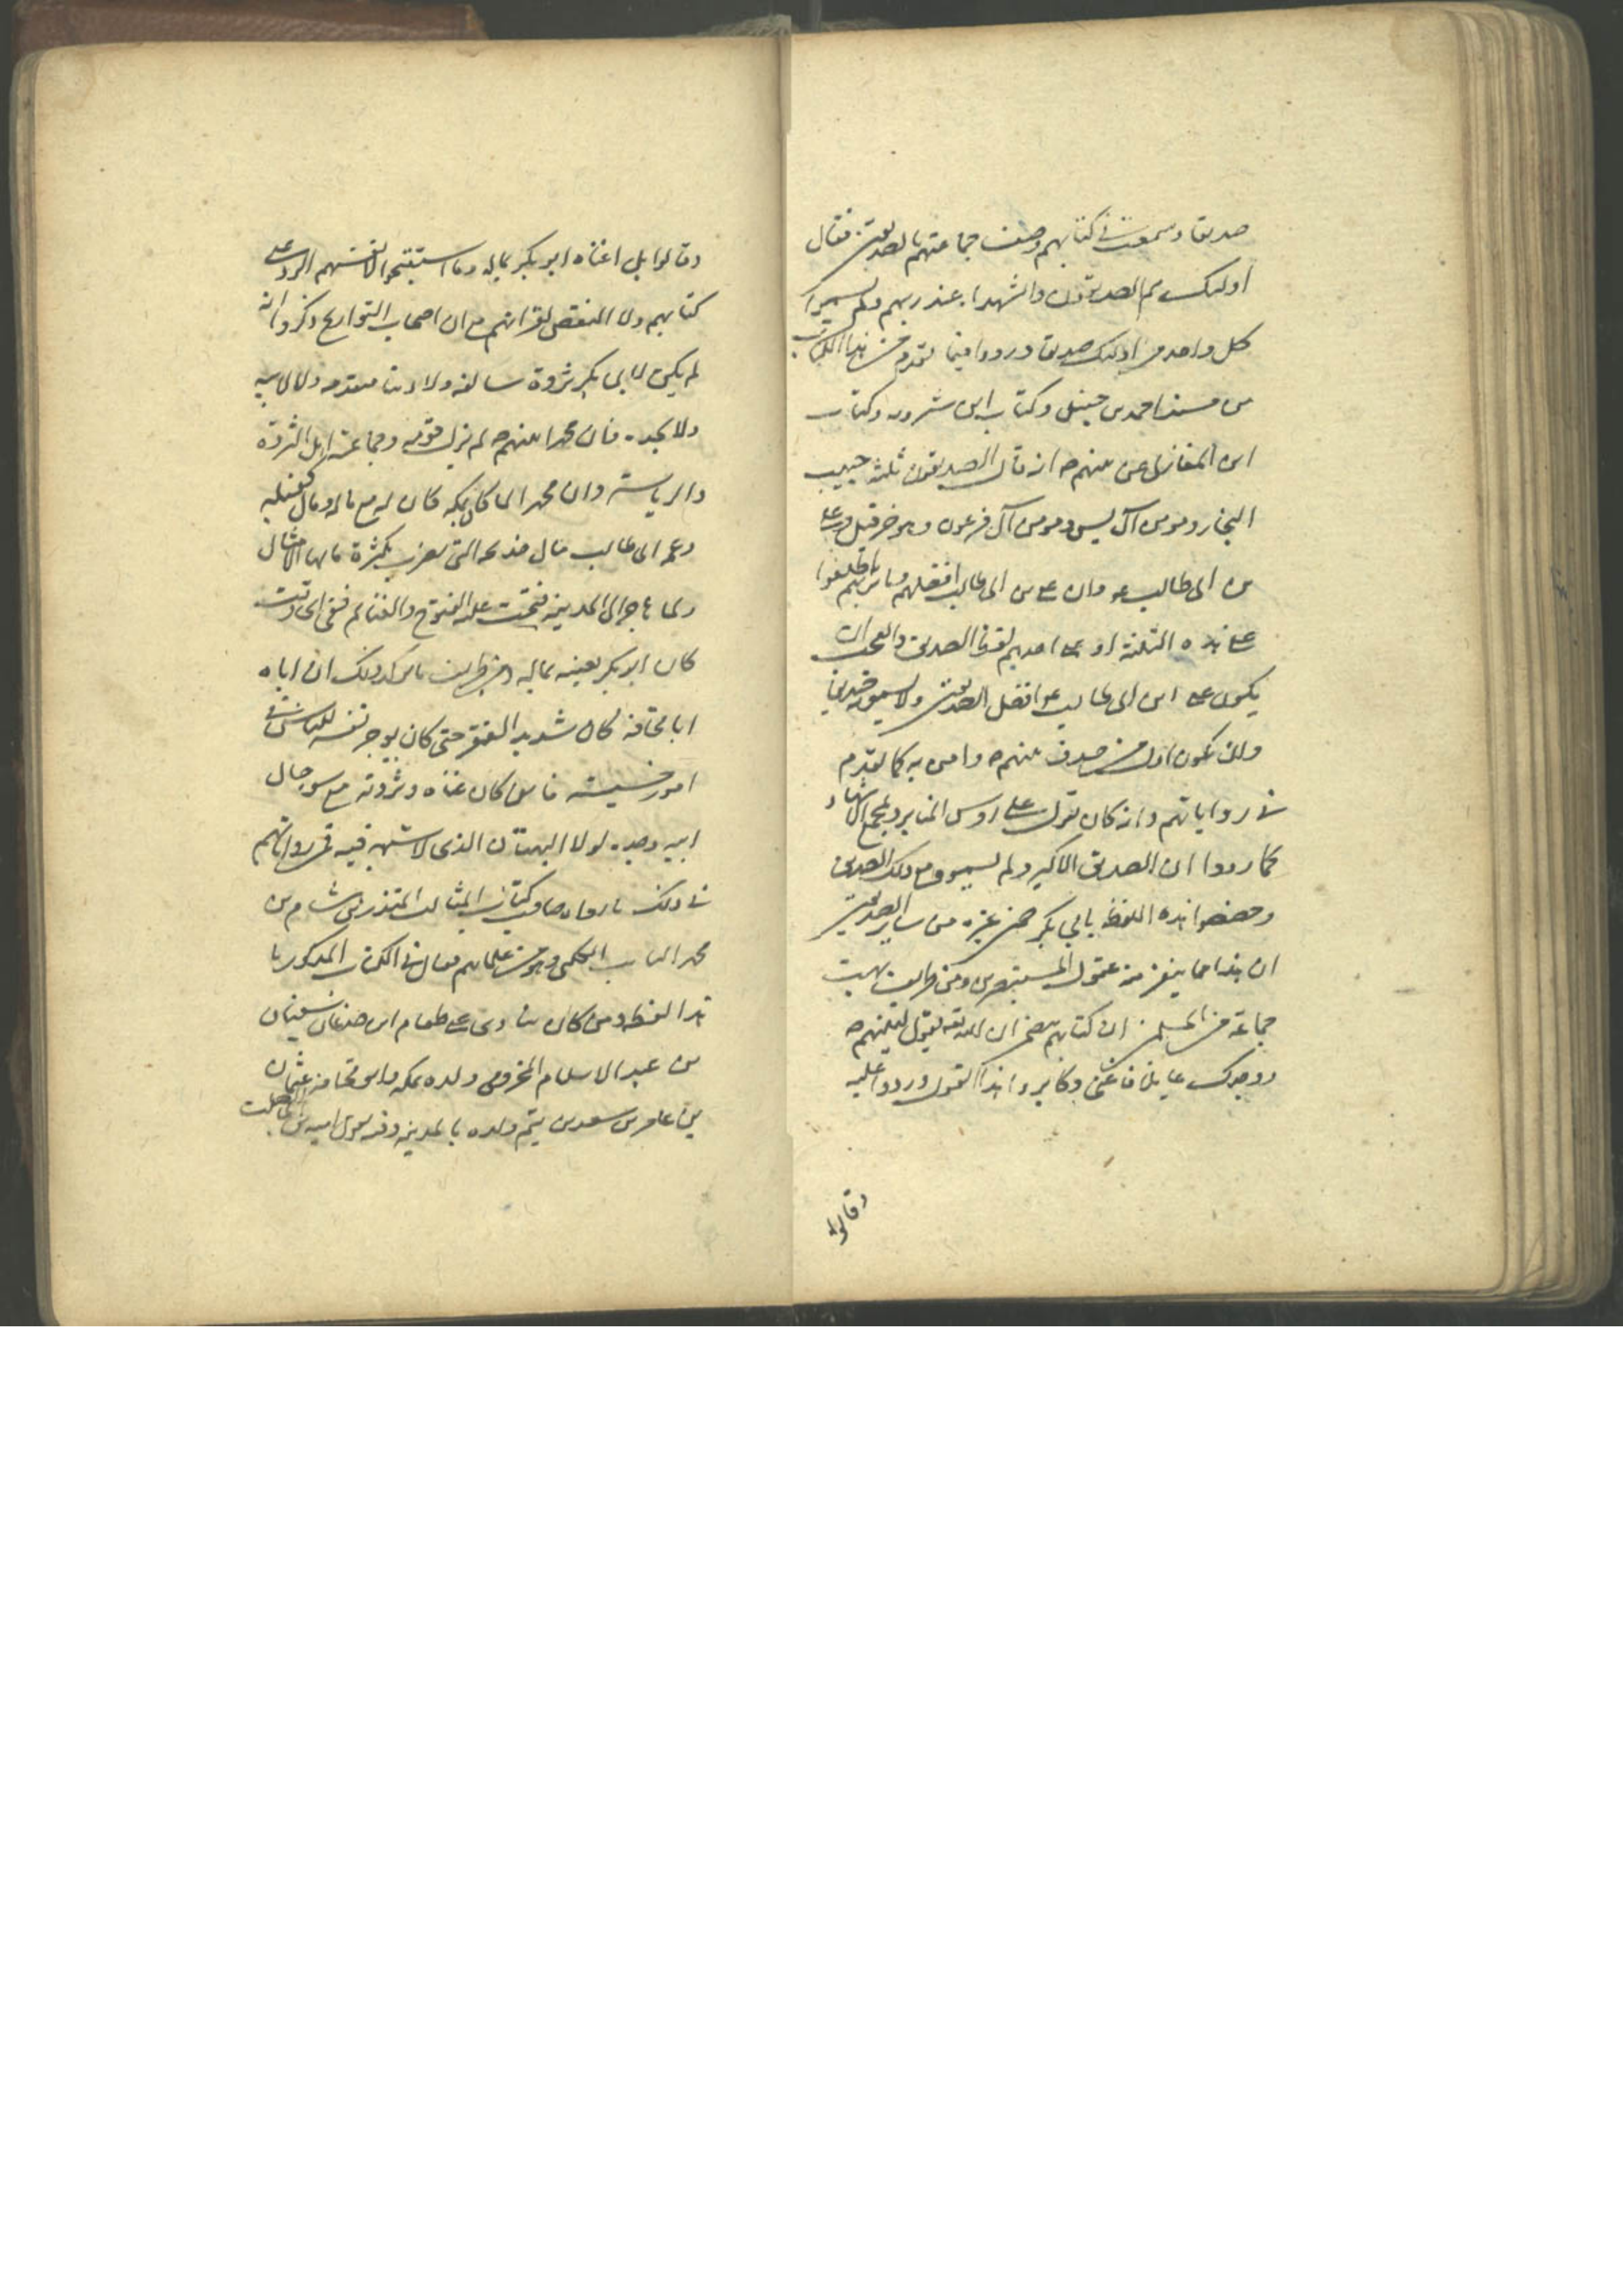 صديقا وسمعت في كتابهم وصف جماعتهم بالصديقين فقال
اولئك هم الصديقون والشهداء عند ربهم ولم يسموا
كل واحد من اولئك صديقا ورووا فيما تقدم من هذا الكتاب
من مسند احمد بن حنبل وكتاب ابن شيرويه وكتاب
ابن المغازلي عن نبيهم ص انه قال الصديقون ثلثه حبيب
النجار ومومن آل يس ومومن آل فرعون وهو خرقيل وعلى
بن ابي طالب ع وان على بن ابي طالب افضلهم وما نريهم
على هذه الثلثه او على احدهم لفظ الصديق والعجب ان
يكون على ابن ابي طالب ع افضل الصديقين ولا يسمونه صديقا
ولان يكون اول من صدق نبيهم ص وامن به كما تقدم
في رواياتهم وانه كان يقول على روس المنابر ومجمع الاشهاد
كما رووا انا الصديق الاكبر ولم يسموه مع ذلك الصديق
وخصصوا هذه اللفظه بابي بكر عن غيره من ساير الصديقين
ان هذا مما ينفر منه عقول المستبصرين ومن طرايف بهت
جماعة من المسلمين ان كتابهم يتضمن ان الله تعه يقول لنبيهم ص
ووجدك عايلا فاغنى وكابروا هذا القول وردوا عليه
وقالوا
وقالوا بل اغناه ابو بكر بماله وما استقبحوا لانفسهم الرد على
كتابهم ولا النقص لقرانهم مع ان اصحاب التواريخ ذكروا انه
لم يكن لابي بكر ثروة سالفه ولا ... متقدمه ولا لابيه
ولا لجده فان محمدا نبيهم ص لم يزل قومه وجماعته اهل الثروة
والرياسة وان محمدا لما كان بمكه كان له مع ماله ومال كفيله
وعمه ابي طالب مال خديجه التى يضرب بكثرة مالها الامثال
ولما هاجر الى المدينه فتحت عليه الفتوح والغنايم ففى اى وقت
كان ابو بكر يعينه بماله ومن طرايف ... ذلك ان اباه
ابا قحافه كان شديد الفقر حتى كان يوجر نفسه للناس في
امور خسيسه فاين كان غناه وثروته مع سو حال
ابيه وجده لولا البهتان الذى لا شبهه فيه فمن رواياتهم
في ذلك ما رواه صاحب كتاب المثالب المنذر بن هشام بن
محمد السايب الكلبى وهو من علمائهم فقال في الكتاب المذكور ما
هذا لفظه ومن كان ينادى على طعام ابن جدعان سفيان
بن عبد الاسلام المخزومى ولده بمكه وابو قحافه عثمان
بن عامر بن سعد بن تيم ولده بالمدينه وفيه يقول اميه بن ابي الصلت